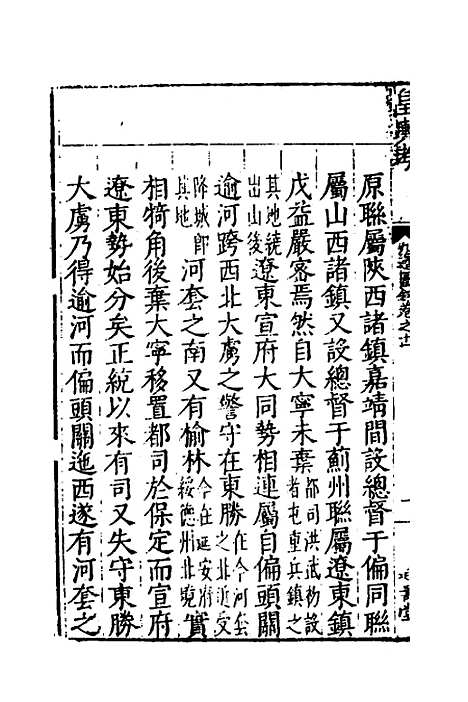 皇輿考
原聯屬陝西諸鎮嘉靖間設總督于偏同聯
屬山西諸鎮又設總督于薊州聯屬遼東鎮
戍益嚴密焉然自大寧未棄都司洪武初設者屯重兵鎮之
其地繞出山後遼東宣府大同勢相連屬自偏頭關
逾河跨西北大虜之警守在東勝在今河套之北近受
降城郎其地河套之南又有榆林今在延安府綏德州北境實
相犄角後棄大寧移置都司於保定而宣府
遼東勢始分矣正統以來有司又失守東勝
大虜乃得逾河而偏頭關迤西遂有河套之